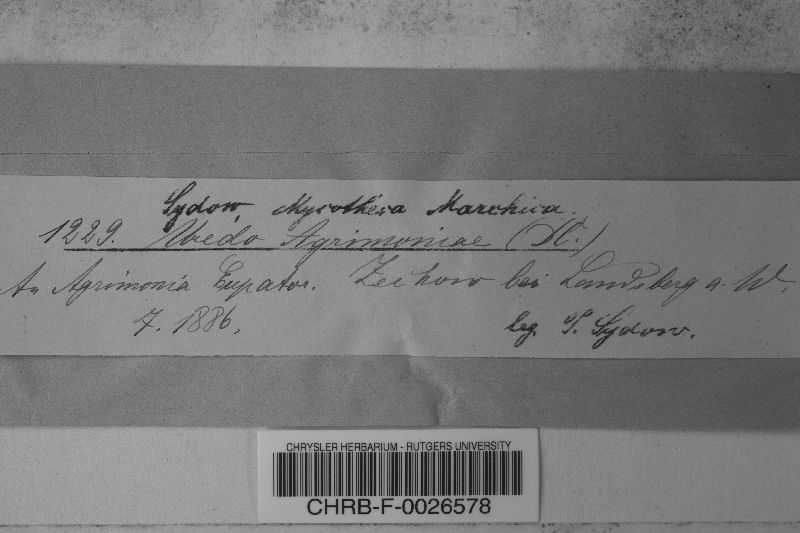 Sydow, Mycotheca Marchica.
1229. Uredo Agrimoniae (DC.)
An Agrimonia Eupator. Zechow bei Landsberg a. W.
7. 1886. leg. P. Sydow.
CHRYSLER HERBARIUM - RUTGERS UNIVERSITY
CHRB-F-0026578